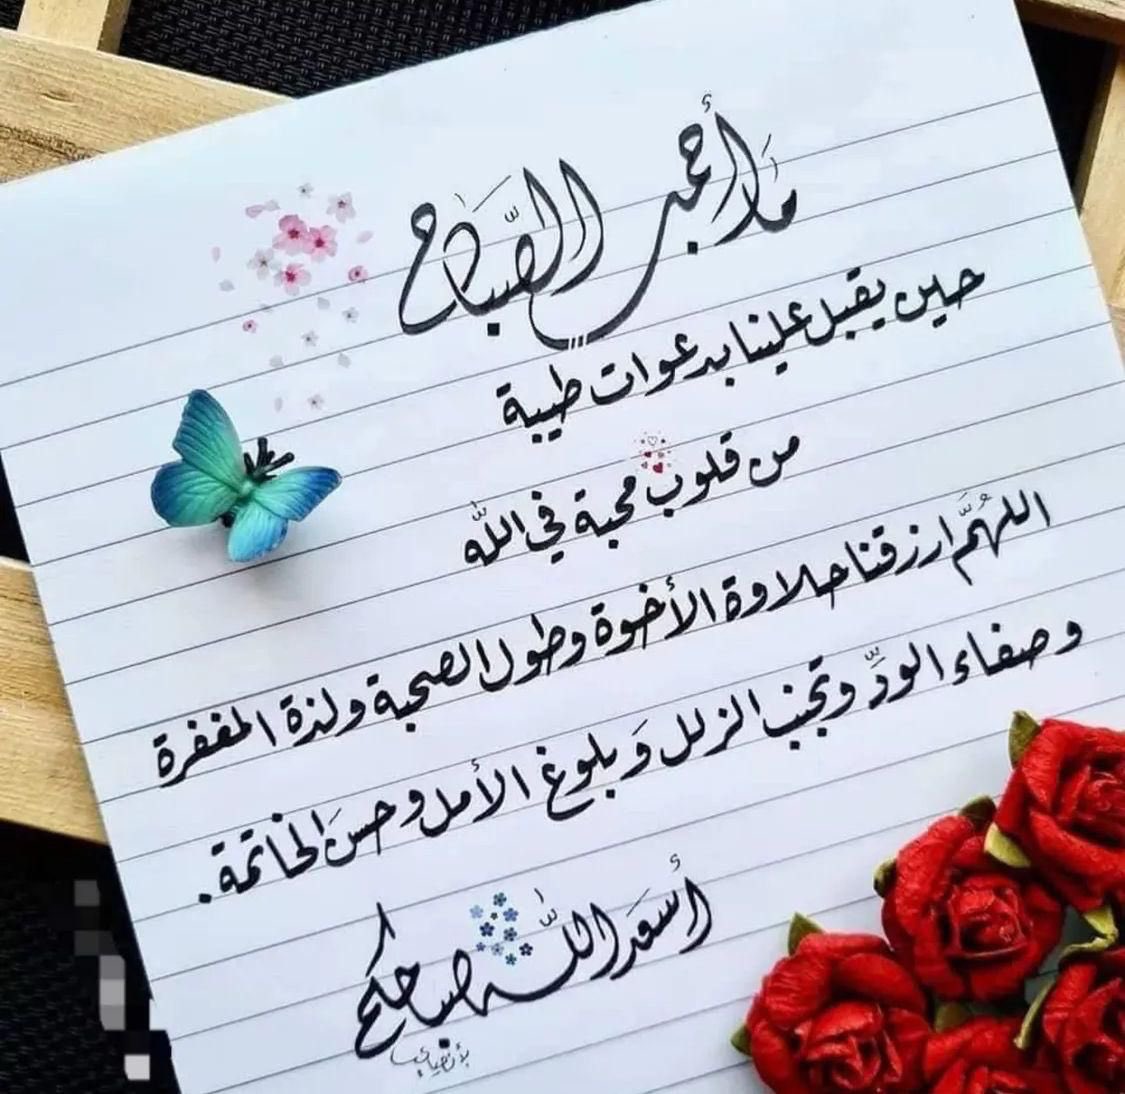 مَا أجمل الصَّباح
حين يقبل علينا بدعوات طيبة
من قلوب محبة في اللّٰه
اللهُمَّ ارزقنا حلاوة الأخوة وطول الصحبة ولذة المغفرة
وصفاء الودِّ وتجنب الزلل وَبلوغ الأمل وحسَن الخاتمة.
أسعَد اللّٰه صباحكم